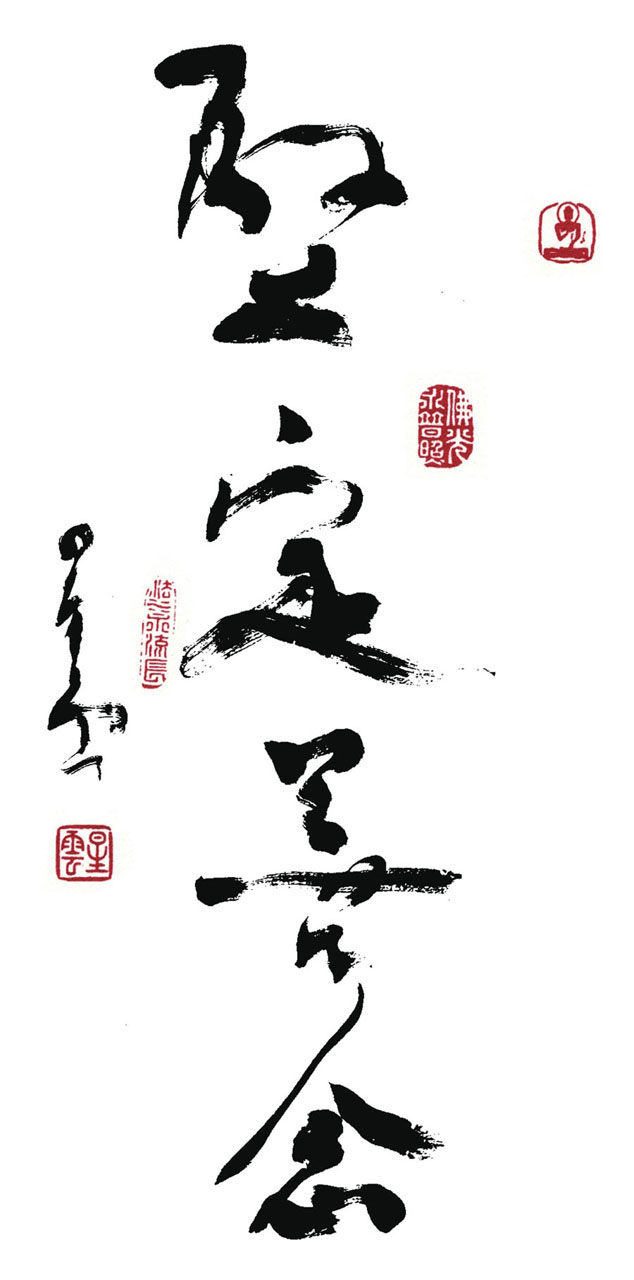 堅定善念
佛光
永普照
法水流長
星雲
星雲